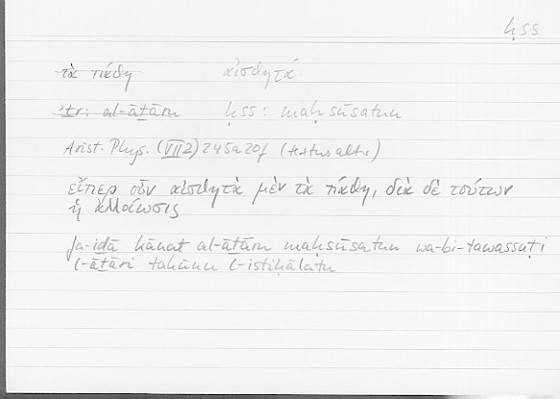 ḥss
τὰ πάθη αἰσθητά
ʾṯr: al-āṯāru ḥss: maḥsūsatun
Arist. Phys. (VII 2) 245a20f (textus alter)
εἴπερ οὖν αἰσθητὰ μὲν τὰ πάθη, διὰ δὲ τούτων
ἡ ἀλλοίωσις
fa-iḏā kānat al-āṯāru maḥsūsatun wa-bi-tawassuṭi
l-āṯāri takūnu l-istiḥālatu